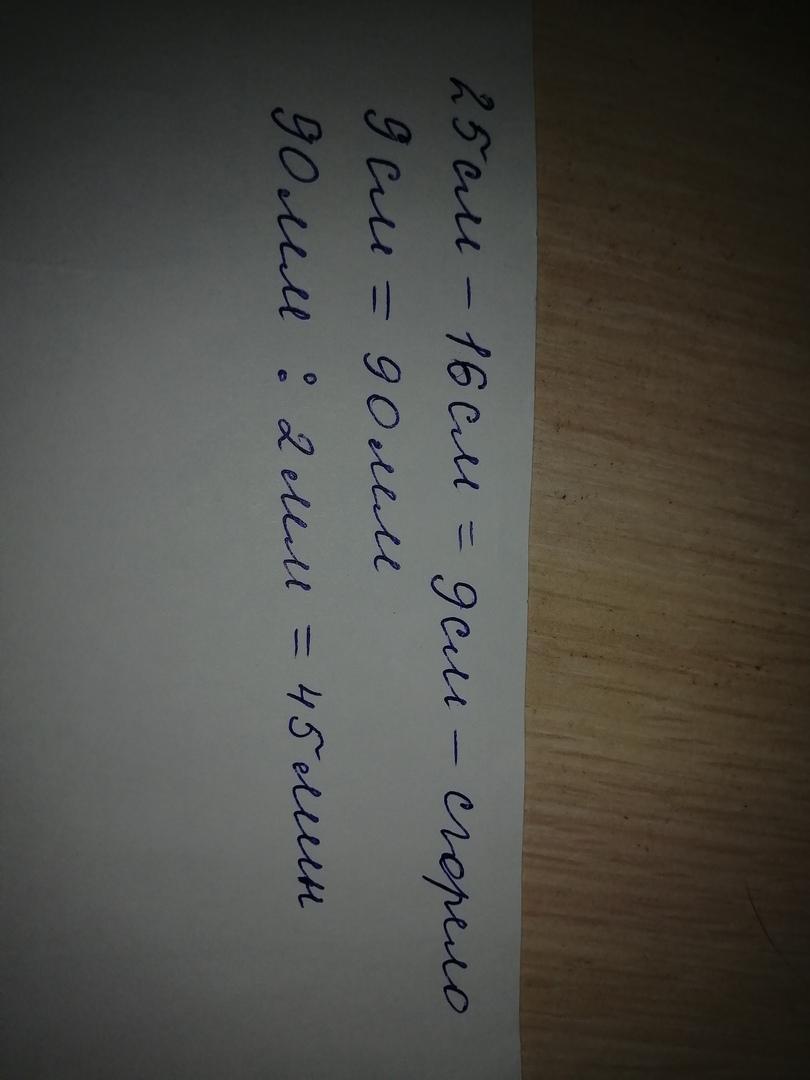 25см - 16см = 9см - сгорело
9см = 90мм
90мм : 2мм = 45мин